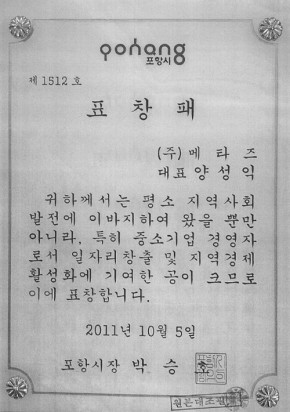 pohang
포항시
제 1512 호
표 창 패
(주) 메 타 즈
대표 양 성 익
귀하께서는 평소 지역사회
발전에 이바지하여 왔을 뿐만
아니라, 특히 중소기업 경영자
로서 일자리창출 및 지역경제
활성화에 기여한 공이 크므로
이에 표창합니다.
2011년 10월 5일
포항시장 박 승 호
원본대조필